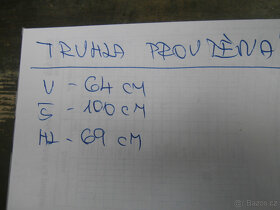 TRUHLA PROUTĚNÁ
V - 64 CM
Š - 100 CM
HL - 69 CM
Bazoš.cz